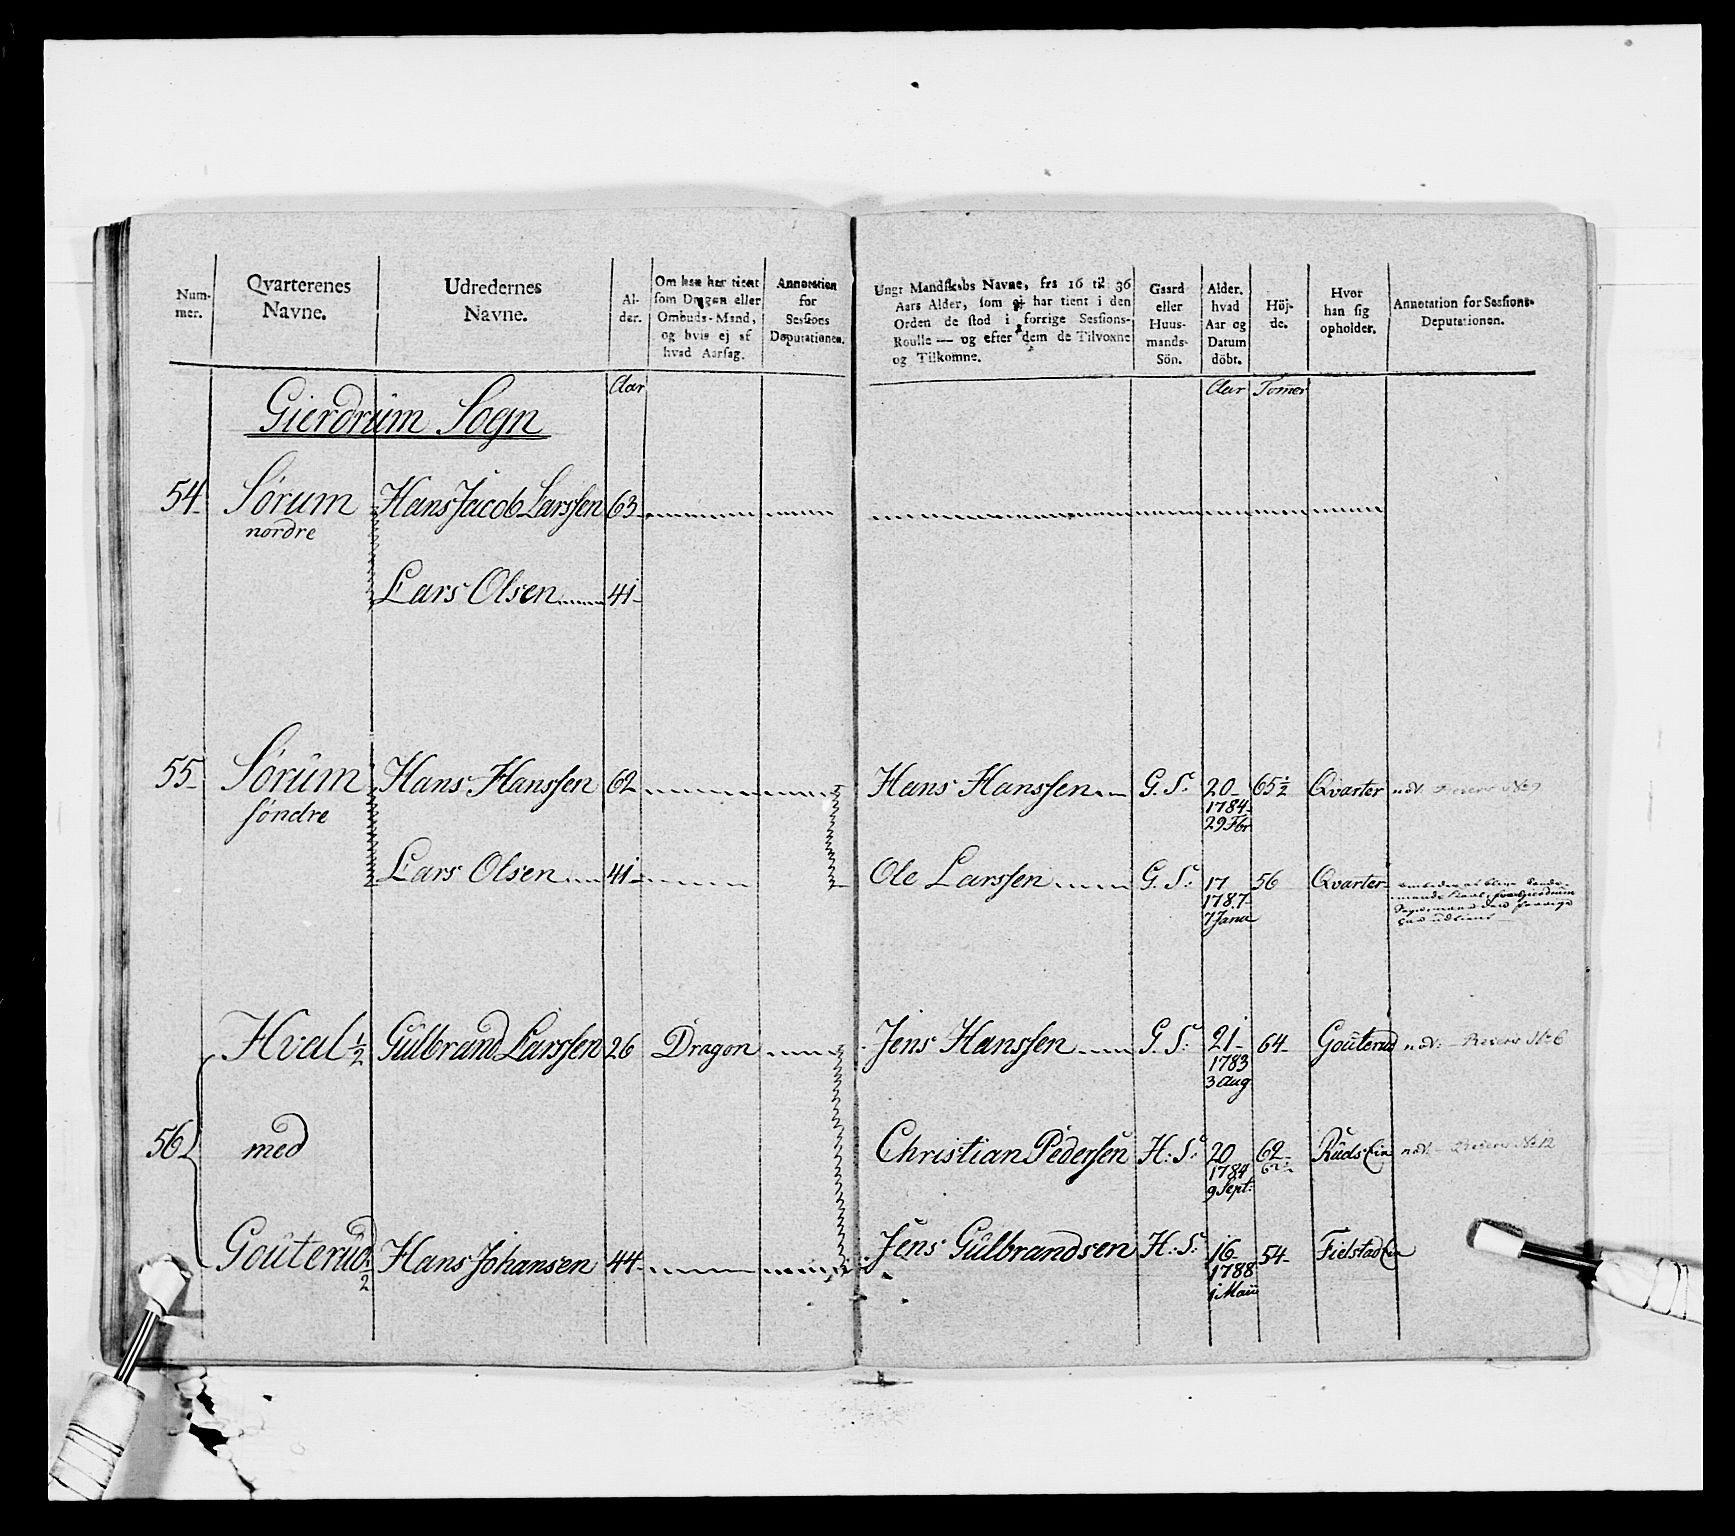 Num-
mer.
Qvarterenes
Navne.
Udredernes
Navne.
Al-
der.
Om han har tient
som Dragon eller
Ombuds-Mand,
og hvis ej af
hvad Aarsag.
Annotation
for
Sessions
Deputationen.
Ungt Mandskabs Navne, fra 16 til 36
Aars Alder, som ej har tient i den
Orden de stod i forrige Sessions-
Roulle — og efter dem de Tilvoxne
og Tilkomne.
Gaard
eller
Huus-
mands-
Sön.
Alder.
hvad
Aar og
Datum
döbt.
Höj-
de.
Hvor
han sig
opholder.
Annotation for Sessions-
Deputationen.
Aar
Aar Tomer
Gierdrum Sogn
54 Sørum Hans Jacob Larssen 63
nordre
Lars Olsen 41
55 Sørum Hans Hanssen 62 Hans Hanssen G. S: 20 65½ Qvarter
søndre 1784
29 Fbr
Lars Olsen 41 Ole Larssen G. S: 17 56 Qvarter
1787
7 Janu
Hval ½ Gulbrand Larssen 26 Dragon Jens Hanssen G. S: 21 64 Gouterud
1783
3 Aug
56 med Christian Pedersen H: S: 20 62 Ruds Eie
1784 62½
9 Sept:
Gouterud ½ Hans Johansen 44 Jens Gulbrandsen H: S: 16 54 Fielstad Eie
1788
1 Maii